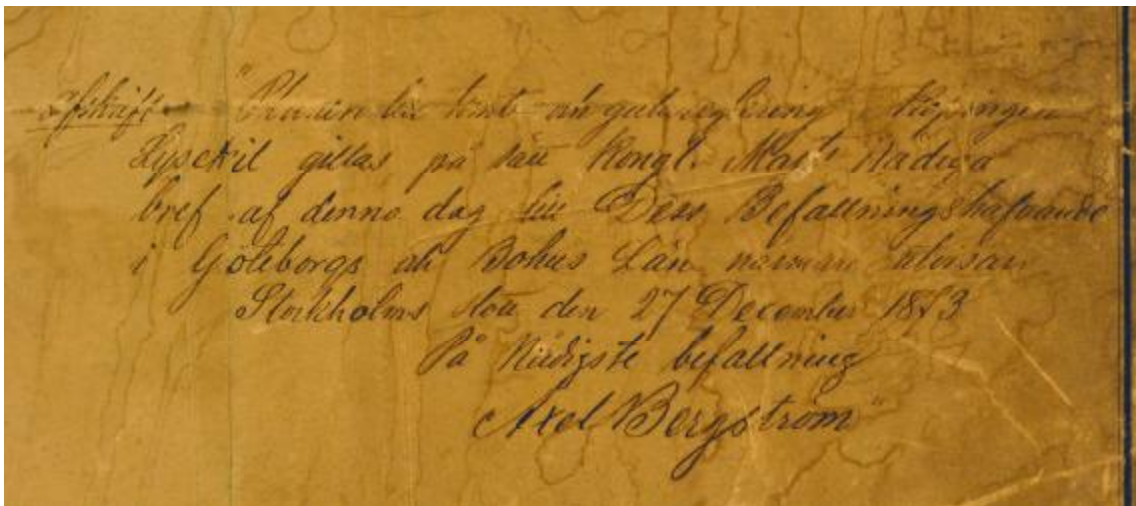 Afskrift "Planen till tomt och gatureglering i Köpingen
Lysekil gillas på sätt Kongl. Majts Nådiga
bref af denna dag till Dess Befallningshafvande
i Göteborgs och Bohus Län närmare utvisar.
Stockholms slott den 27 December 1873
På Nådigste befallning
Axel Bergström"